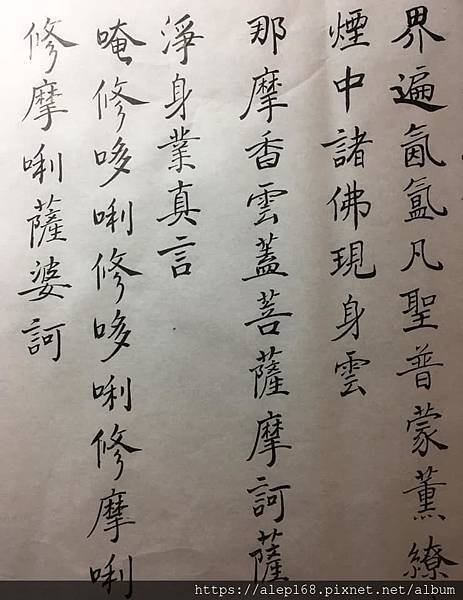 界遍氤氳凡聖普蒙薰繚
煙中諸佛現身雲
那摩香雲蓋菩薩摩訶薩
淨身業真言
唵修哆唎修哆唎修摩唎
修摩唎薩婆訶
https://alep168.pixnet.net/album